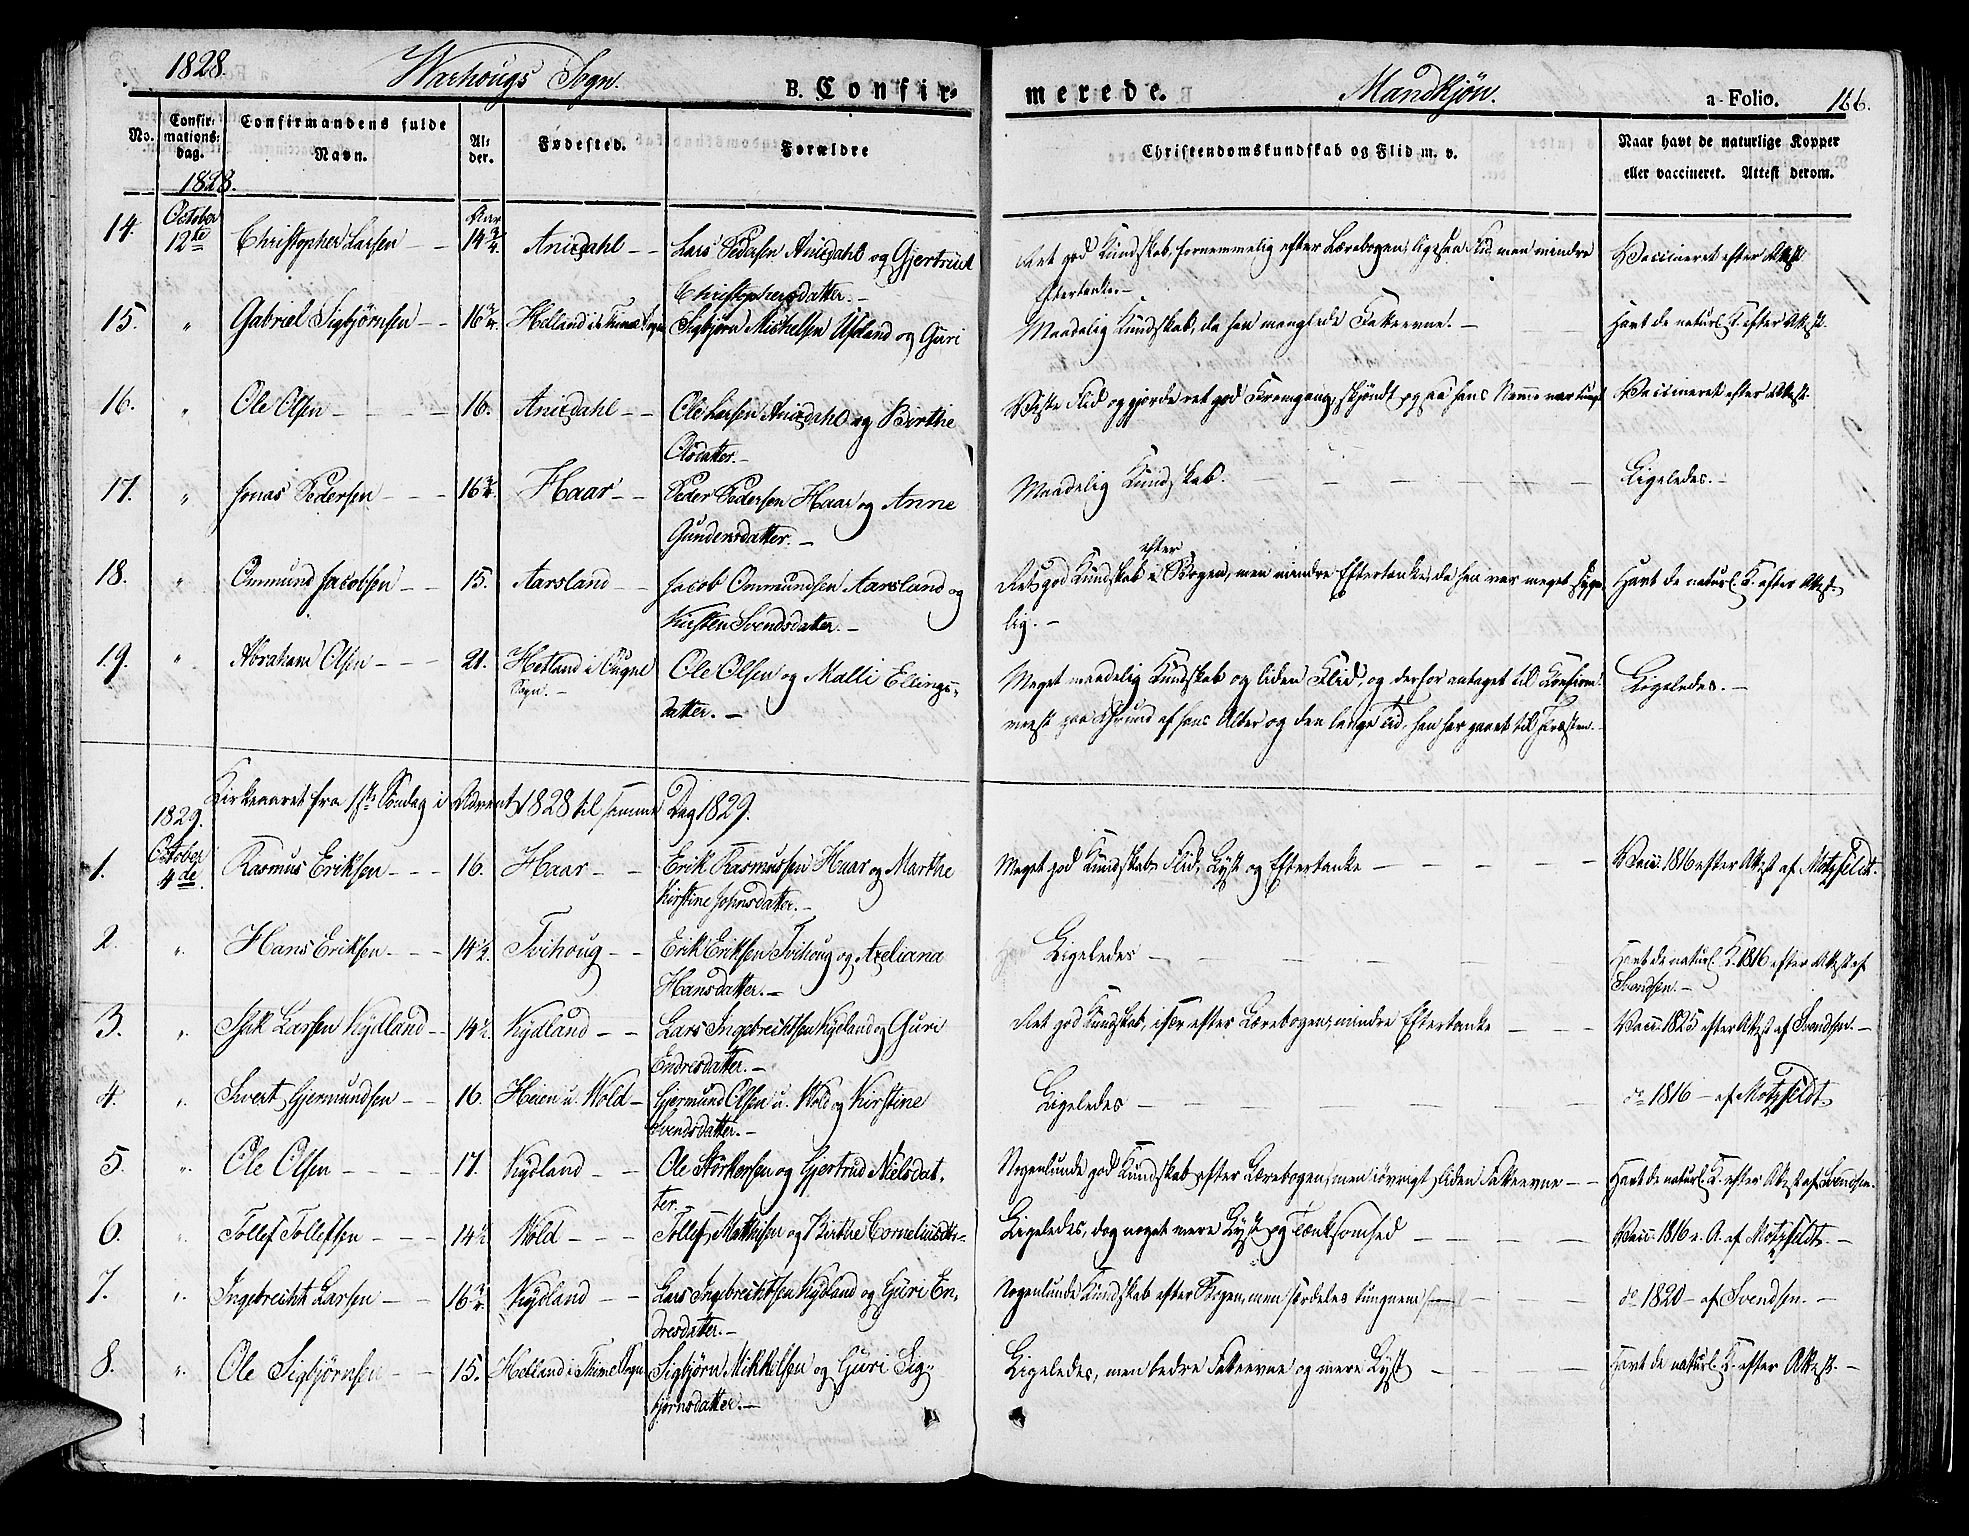 1828. Warhougs Sogn. B. Confir- merede. Mandkjøn. a-Folio. 166.
No. Confirmations-dag. Confirmandens fulde Navn. Alder. Fødested. Forældre Christendomskundskab og Flid m. v. Naar havt de naturlige Kopper eller vaccineret. Attest derom.
1828.
14. October 12te Christopher Larsen Aar 14 3/4. Anisdahl Lars Pedersen Anisdahl og Gjertrud Ret god Kundskab, fornemmelig efter Lærebogen, ligesaa Flid, men mindre Vaccineret efter Attest
Christophersdatter. Eftertanke.
15. " Gabriel Sigbjørnsen 16 3/4. Helland i Time Sogn Sigbjørn Michelsen Upland og Guri Maadelig Kundskab, da han manglede Fatteevne. Havt de naturl. K. efter Attest.
16. " Ole Olsen 16. Anisdahl Ole Larsen Anisdahl og Birthe Viiste Flid og gjorde ret god Fremgang, skjøndt ogsaa hans Nemme var tungt Vaccineret efter Attest.
Olsdatter.
17. " Jonas Pedersen 16 3/4. Haar Peder Pedersen Haar og Anne Maadelig Kundskab. Ligeledes.
Gundersdatter.
18. " Ommund Jacobsen 15. Aarsland Jacob Ommundsen Aarsland og Ret god Kundskab efter Bogen, men mindre Eftertanke, da han var meget syge- Havt de naturl. K. efter Attest.
Kirsten Svendsdatter. lig.
19. " Abraham Olsen 21. Hetland i Ougne Ole Olsen og Malli Ellings- Meget maadelig Kundskab og liden Flid, og derfor antaget til Confirm. Ligeledes.
Sogn. datter. meest paa Grund af hans Alder og den lange Tid, han har gaaet til Præsten.
Kirkeaaret fra 1ste Søndag i Advent 1828 til samme Dag 1829.
1829.
1. October 4de. Rasmus Eriksen 16. Haar Erik Rasmussen Haar og Marthe Meget god Kundskab, Flid, Lyst og Eftertanke Vacc. 1816 efter Attest af Motzfeldt.
Kirstine Johnsdatter.
2. " Hans Eriksen 14 1/2. Tvihoug Erik Eriksen Tvihoug og Axeliana Ligeledes Havt de naturl. K. 1816 efter Attest af
Hansdatter. Svendsen.
3. " Larsen Kydland 14 1/2. Kydland Lars Ingebrechtsen Kydland og Guri Ret god Kundskab, især efter Lærebogen, mindre Eftertanke Vacc. 1825 efter Attest af Svendsen.
Endresdatter.
4. " Sivert Gjermundsen 16. Heien u. Wold Gjermund Olsen u. Wold og Kirstine Ligeledes do 1816 af Motzfeldt.
Svendsdatter.
5. " Ole Olsen 17. Kydland Ole Størkersen og Gjertrud Nielsdat- Nogenlunde god Kundskab efter Lærebogen, men iøvrigt liden Fatteevne Havt de naturl. K. efter Attest af Svendsen.
ter.
6. " Tollef Tollefsen 14 1/2 Wold Tollef Mathisen og Birthe Corneliusdtr. Ligeledes, dog noget mere Lyst og Tænksomhed Vacc. 1816 e. A. af Motzfeldt.
7. " Ingebrecht Larsen 16 3/4. Kydland Lars Ingebrechtsen Kydland og Guri En- Nogenlunde Kundskab efter Bogen, men særdeles tungnem do 1820 af Svendsen.
dresdatter.
8. " Ole Sigbjørnsen 15. Helland i Thime Sogn Sigbjørn Mikkelsen og Guri Sig- Ligeledes, men bedre Fatteevne og mere Lyst Havt de naturl. K. efter Attest.
bjørnsdatter.